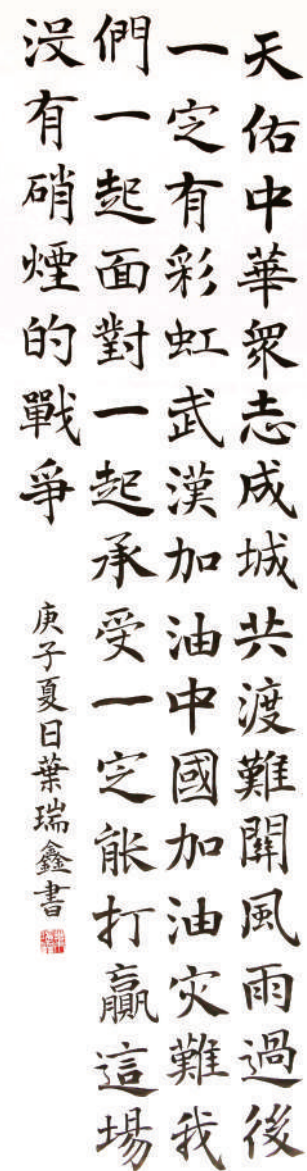 天佑中華衆志成城共渡難關風雨過後
一定有彩虹武漢加油中國加油灾難我
們一起面對一起承受一定能打贏這場
没有硝煙的戰爭
庚子夏日葉瑞鑫書